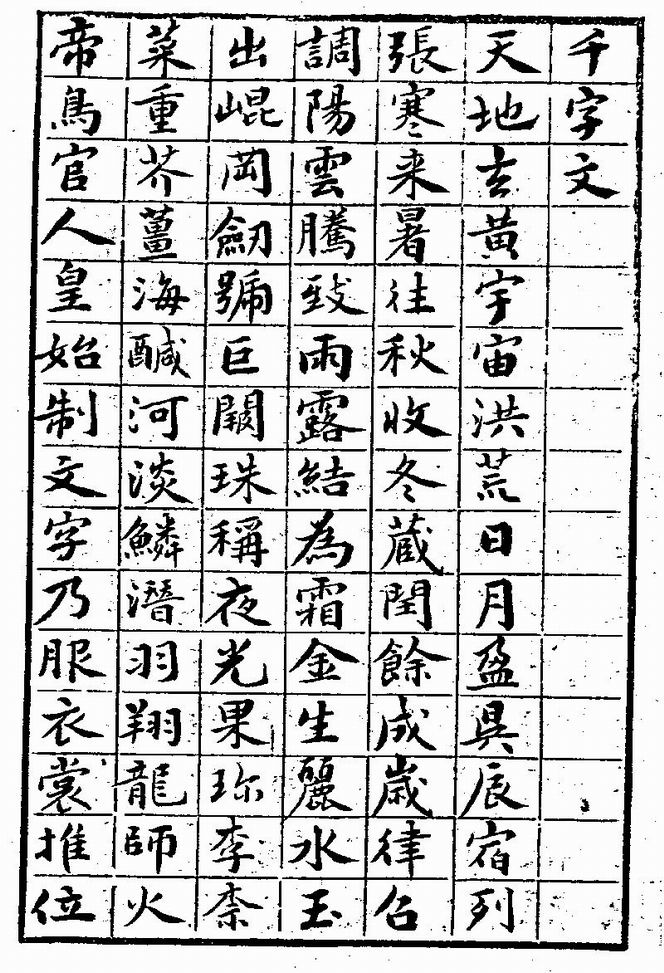 千字文
天地玄黃宇宙洪荒日月盈昃辰宿列
張寒来暑往秋收冬蔵閏餘成歲律吕
調陽雲騰致雨露結為霜金生麗水玉
出崐岡劒號巨闕珠稱夜光果珎李柰
菜重芥薑海醎河淡鱗潛羽翔龍師火
帝鳥官人皇始制文字乃服衣裳推位